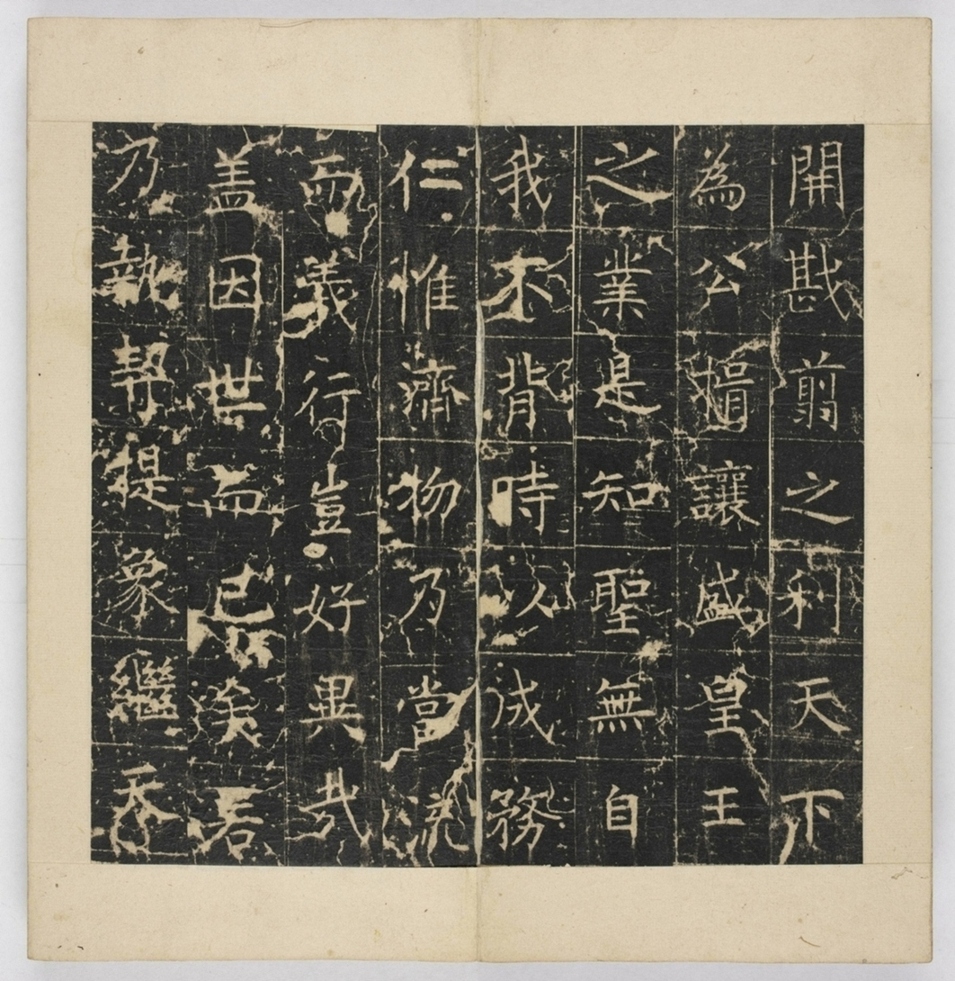 開戡翦之利天下
為公揖讓盛皇王
之業是知聖無自
我不背時以成務
仁惟濟物乃當流
而義行豈好異哉
盖因世而若
乃執契提象繼